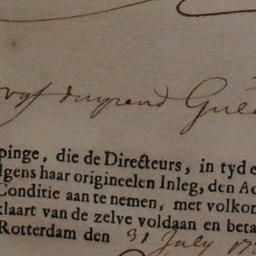 vyf duysend Guld
pinge, die de Directeurs, in tyd e
lgens haar origineelen Inleg, den Ac
Conditie aan te nemen, met volkon
klaart van de zelve voldaan en beta
Rotterdam den 31 July 17